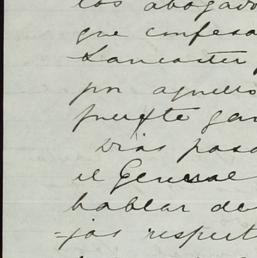 los abogado
que confesa
Lancaster
por aquello
fuerte gar
Dias pasa
el General
hablar de
=jas respect